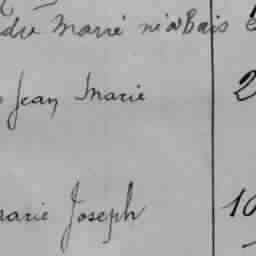 dre Marie né à Bais
Jean Marie 2
Marie Joseph 10